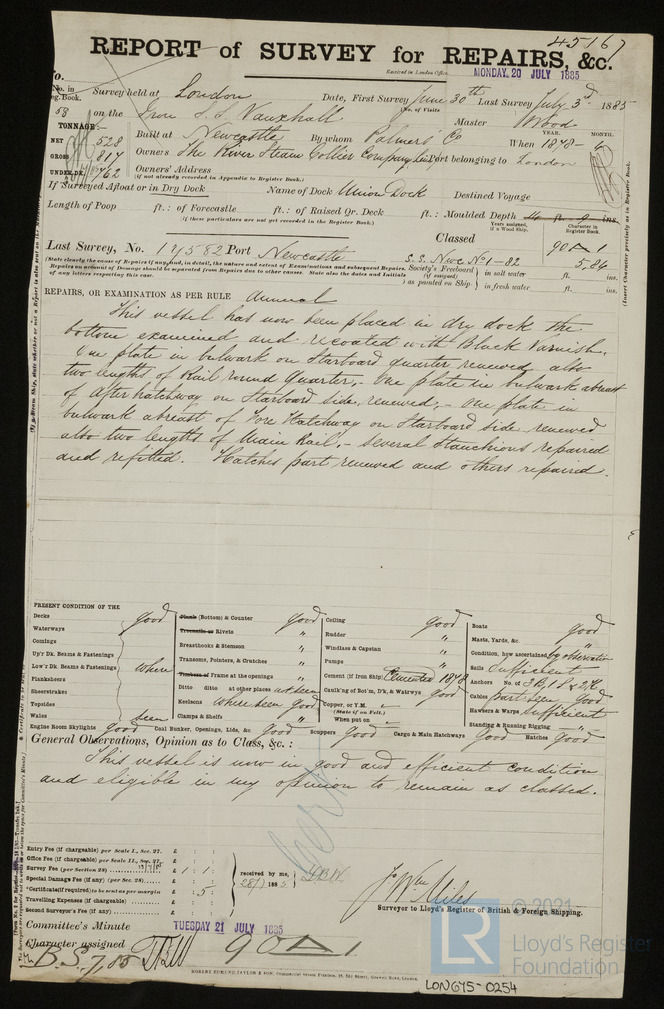 45167
REPORT of SURVEY for REPAIRS, &c.
Received in London Office MONDAY, 20 JULY 1885
No. in Reg. Book. Survey held at London Date, First Survey June 30th Last Survey July 3rd 1885
58 on the Iron S.S. Vauxhall (No. of Visits Master Wood
TONNAGE:— Built at Newcastle By whom Palmers Co When 1878 - YEAR. MONTH.
NET 528
GROSS 817 Owners The River Steam Collier Company Port belonging to London
UNDER DK. 762 Owners' Address
(if not already recorded in Appendix to Register Book.)
If Surveyed Afloat or in Dry Dock Name of Dock Union Dock Destined Voyage
Length of Poop ft.: of Forecastle ft.: of Raised Qr. Deck ft.: Moulded Depth ft. ins.
(if these particulars are not yet recorded in the Register Book.)
Years assigned, if a Wood Ship. Character in Register Book.
Classed 90 A 1
Last Survey, No. 17582 Port Newcastle S.S. Nwc No1-82 5,84
(State clearly the cause of Repairs if any, and, in detail, the nature and extent of Examinations and subsequent Repairs.
Repairs on account of Damage should be separated from Repairs due to other causes. State also the dates and Initials
of any letters respecting this case.
Society's Freeboard (if assigned) as painted on Ship. in salt water ft. ins.
in fresh water ft. ins.
REPAIRS, OR EXAMINATION AS PER RULE Annual
This vessel has now been placed in dry dock the
bottom examined and recoated with Black Varnish.
One plate in bulwark on Starboard quarter renewed, also
two lengths of Rail round Quarter,- One plate in bulwark abreast
of After hatchway on Starboard side, renewed;- One plate in
bulwark abreast of Fore Hatchway on Starboard side renewed
also two lengths of Main Rail;- several Stanchions repaired
and refitted. Hatches part renewed and others repaired.
PRESENT CONDITION OF THE
Decks good
Waterways "
Comings "
Up'r Dk. Beams & Fastenings "
Low'r Dk. Beams & Fastenings where
Planksheers
Sheerstrakes
Topsides
Wales seen
Engine Room Skylights good
Plank (Bottom) & Counter good
Treenails or Rivets "
Breasthooks & Stemson "
Transoms, Pointers, & Crutches "
Timbers or Frame at the openings "
Ditto ditto at other places not seen
Keelsons where seen good
Clamps & Shelfs
Coal Bunker, Openings, Lids, &c. good
Ceiling good
Rudder "
Windlass & Capstan "
Pumps "
Cement (if Iron Ship) Cemented 1878
Caulk'g of Bot'm, D'k, & Watrwys good
Copper, or Y.M.
(State if on Felt.)
When put on
Scuppers good Cargo & Main Hatchways Good
Boats good
Masts, Yards, &c. "
Condition, how ascertained by observation
Sails Sufficient
Anchors No. of 3B, 1S & 2K
Cables Part seen Good
Hawsers & Warps Sufficient
Standing & Running Rigging "
Hatches Good
General Observations, Opinion as to Class, &c.:
This vessel is now in good and efficient condition
and eligible in my opinion to remain as classed.
Entry Fee (if chargeable) per Scale I., Sec. 27. £ : :
Office Fee (if chargeable) per Scale II., Sec. 27. £ : :
Survey Fee (per Section 28) £ 1 : 1 :
Special Damage Fee (if any) (per Sec. 28) £ : :
*Certificate (if required) to be sent as per margin £ : 5 :
Travelling Expenses (if chargeable) £ : :
Second Surveyor's Fee (if any) £ : :
received by me,
28/7 1885
J. Wm Miles
Surveyor to Lloyd's Register of British & Foreign Shipping.
Committee's Minute TUESDAY 21 JULY 1885
Character assigned 90 A 1
B.S. 7,85
ROBERT EDMUND TAYLOR & SON
© 2021
LR
Lloyd's Register
Foundation
LON675-0254